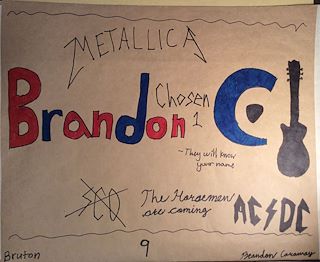 METALLICA
Brandon C
Chosen
1
~They will know
your name
The Horsemen
are coming
AC/DC
9
Bruton
Brandon Caraway